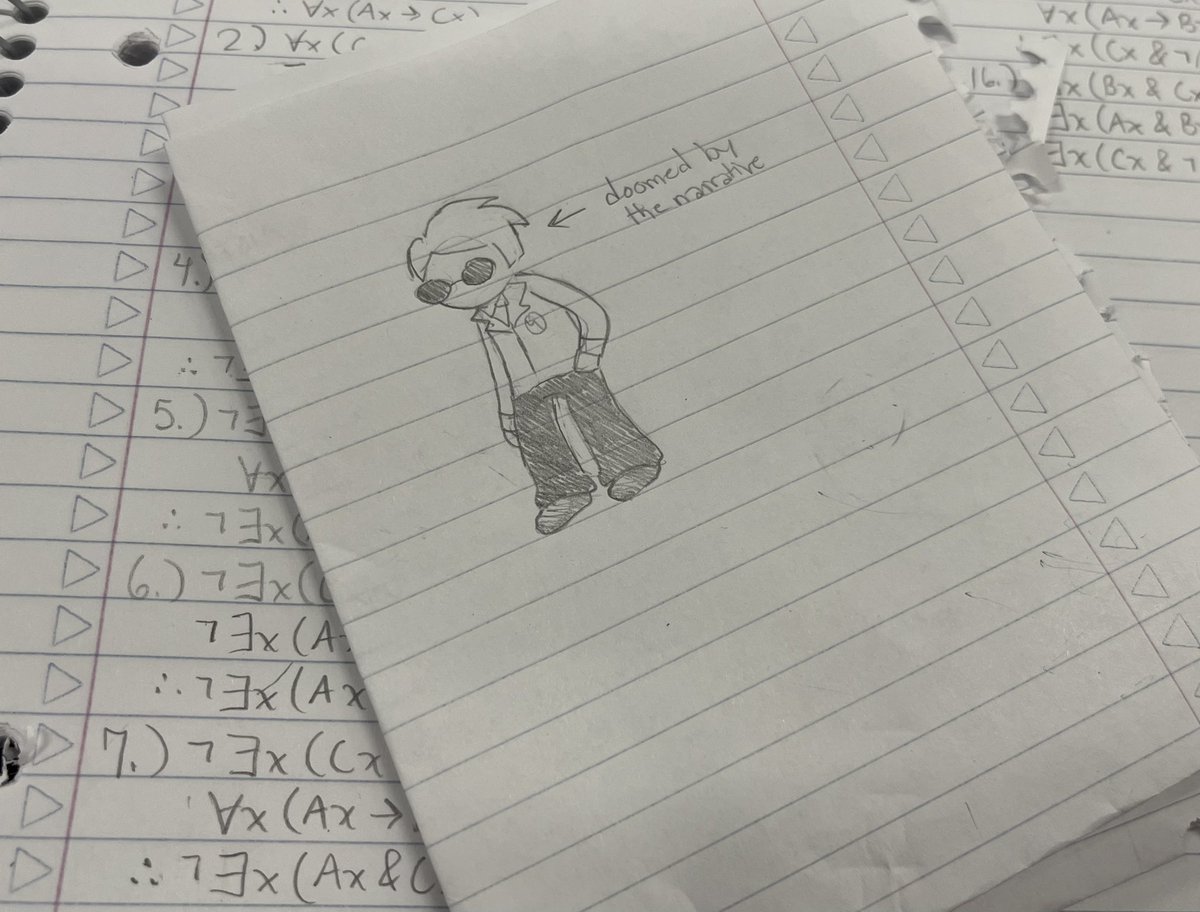 ∴ ∀x(Ax → Cx)
2.) ∀x(C
4.)
∴ ¬∃
5.) ¬∃
∀x
∴ ¬∃x(
6.) ¬∃x(C
¬∃x(A
∴ ¬∃x(Ax
7.) ¬∃x(Cx
∀x(Ax →
∴ ¬∃x(Ax & C
doomed by
the narrative
∀x(Ax → B
x(Cx & ¬
16.) x(Bx & Cx
∃x(Ax & B
∃x(Cx & ¬